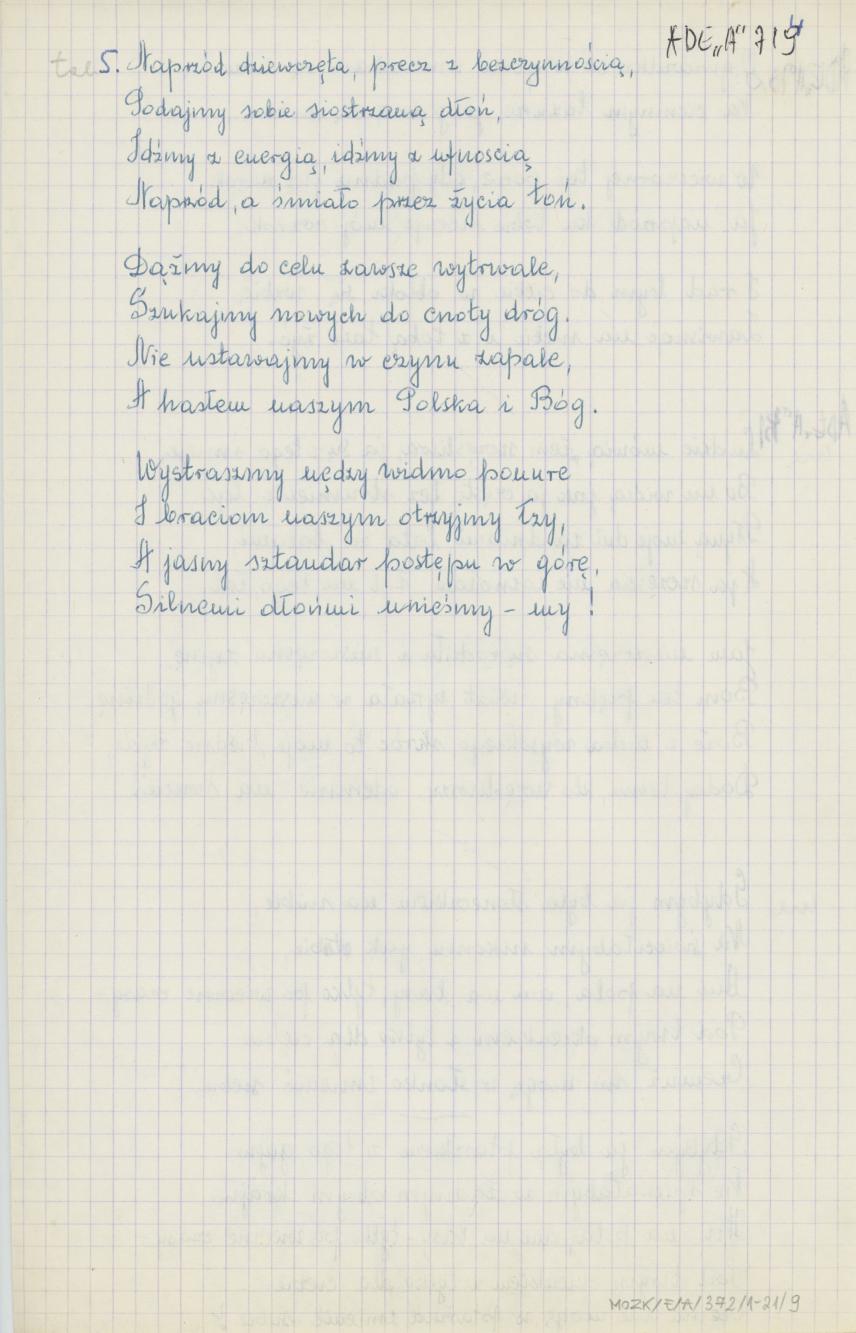 ADE „A" 719
5. Naprzód dziewczęta, precz z bezczynnością,
Podajmy sobie siostrzaną dłoń,
Idźmy z energią, idźmy z ufnoscią
Naprzód, a śmiało przez życia toń.
Dążmy do celu zawsze wytrwale,
Szukajmy nowych do cnoty dróg.
Nie ustawajmy w czynu zapale,
A hasłem naszym Polska i Bóg.
Wystraszmy nędzy widmo ponure
I braciom naszym otrzyjmy łzy,
A jasny sztandar postępu w górę,
Silnemi dłońmi unieśmy - my!
MOZK/E/A/372/1-21/9